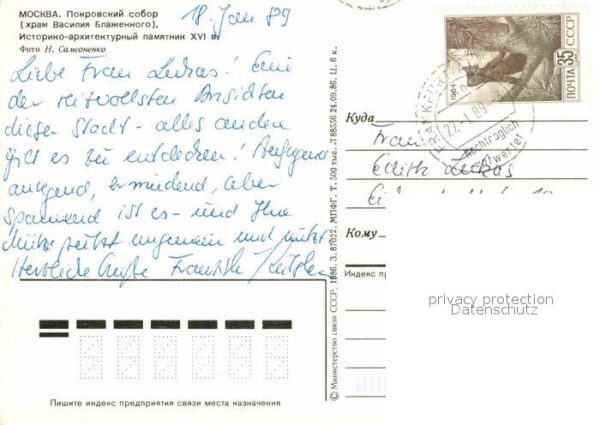 МОСКВА. Покровский собор
(храм Василия Блаженного).
Историко-архитектурный памятник XVI в.
Фото Н. Самсоненко
18. Jan 89
Liebe Frau Lukas! Eine
der reizvollsten Ansichten
dieser Stadt - alles andere
gilt es zu entdecken! Aufregend,
ermüdend, aber
spannend ist es - und Ihre
Mütze
Herzliche Grüße
© Министерство связи СССР, 1986. З. 87022. МПФГ. Т. 500 тыс. Л 88556 24.09.86. Ц. 6 к.
ПОЧТА СССР
35
1984
27.-1.89
Nachträglich
entwertet
Куда
Frau
Edith Lukas
Кому
Индекс пре
privacy protection
Datenschutz
Пишите индекс предприятия связи места назначения